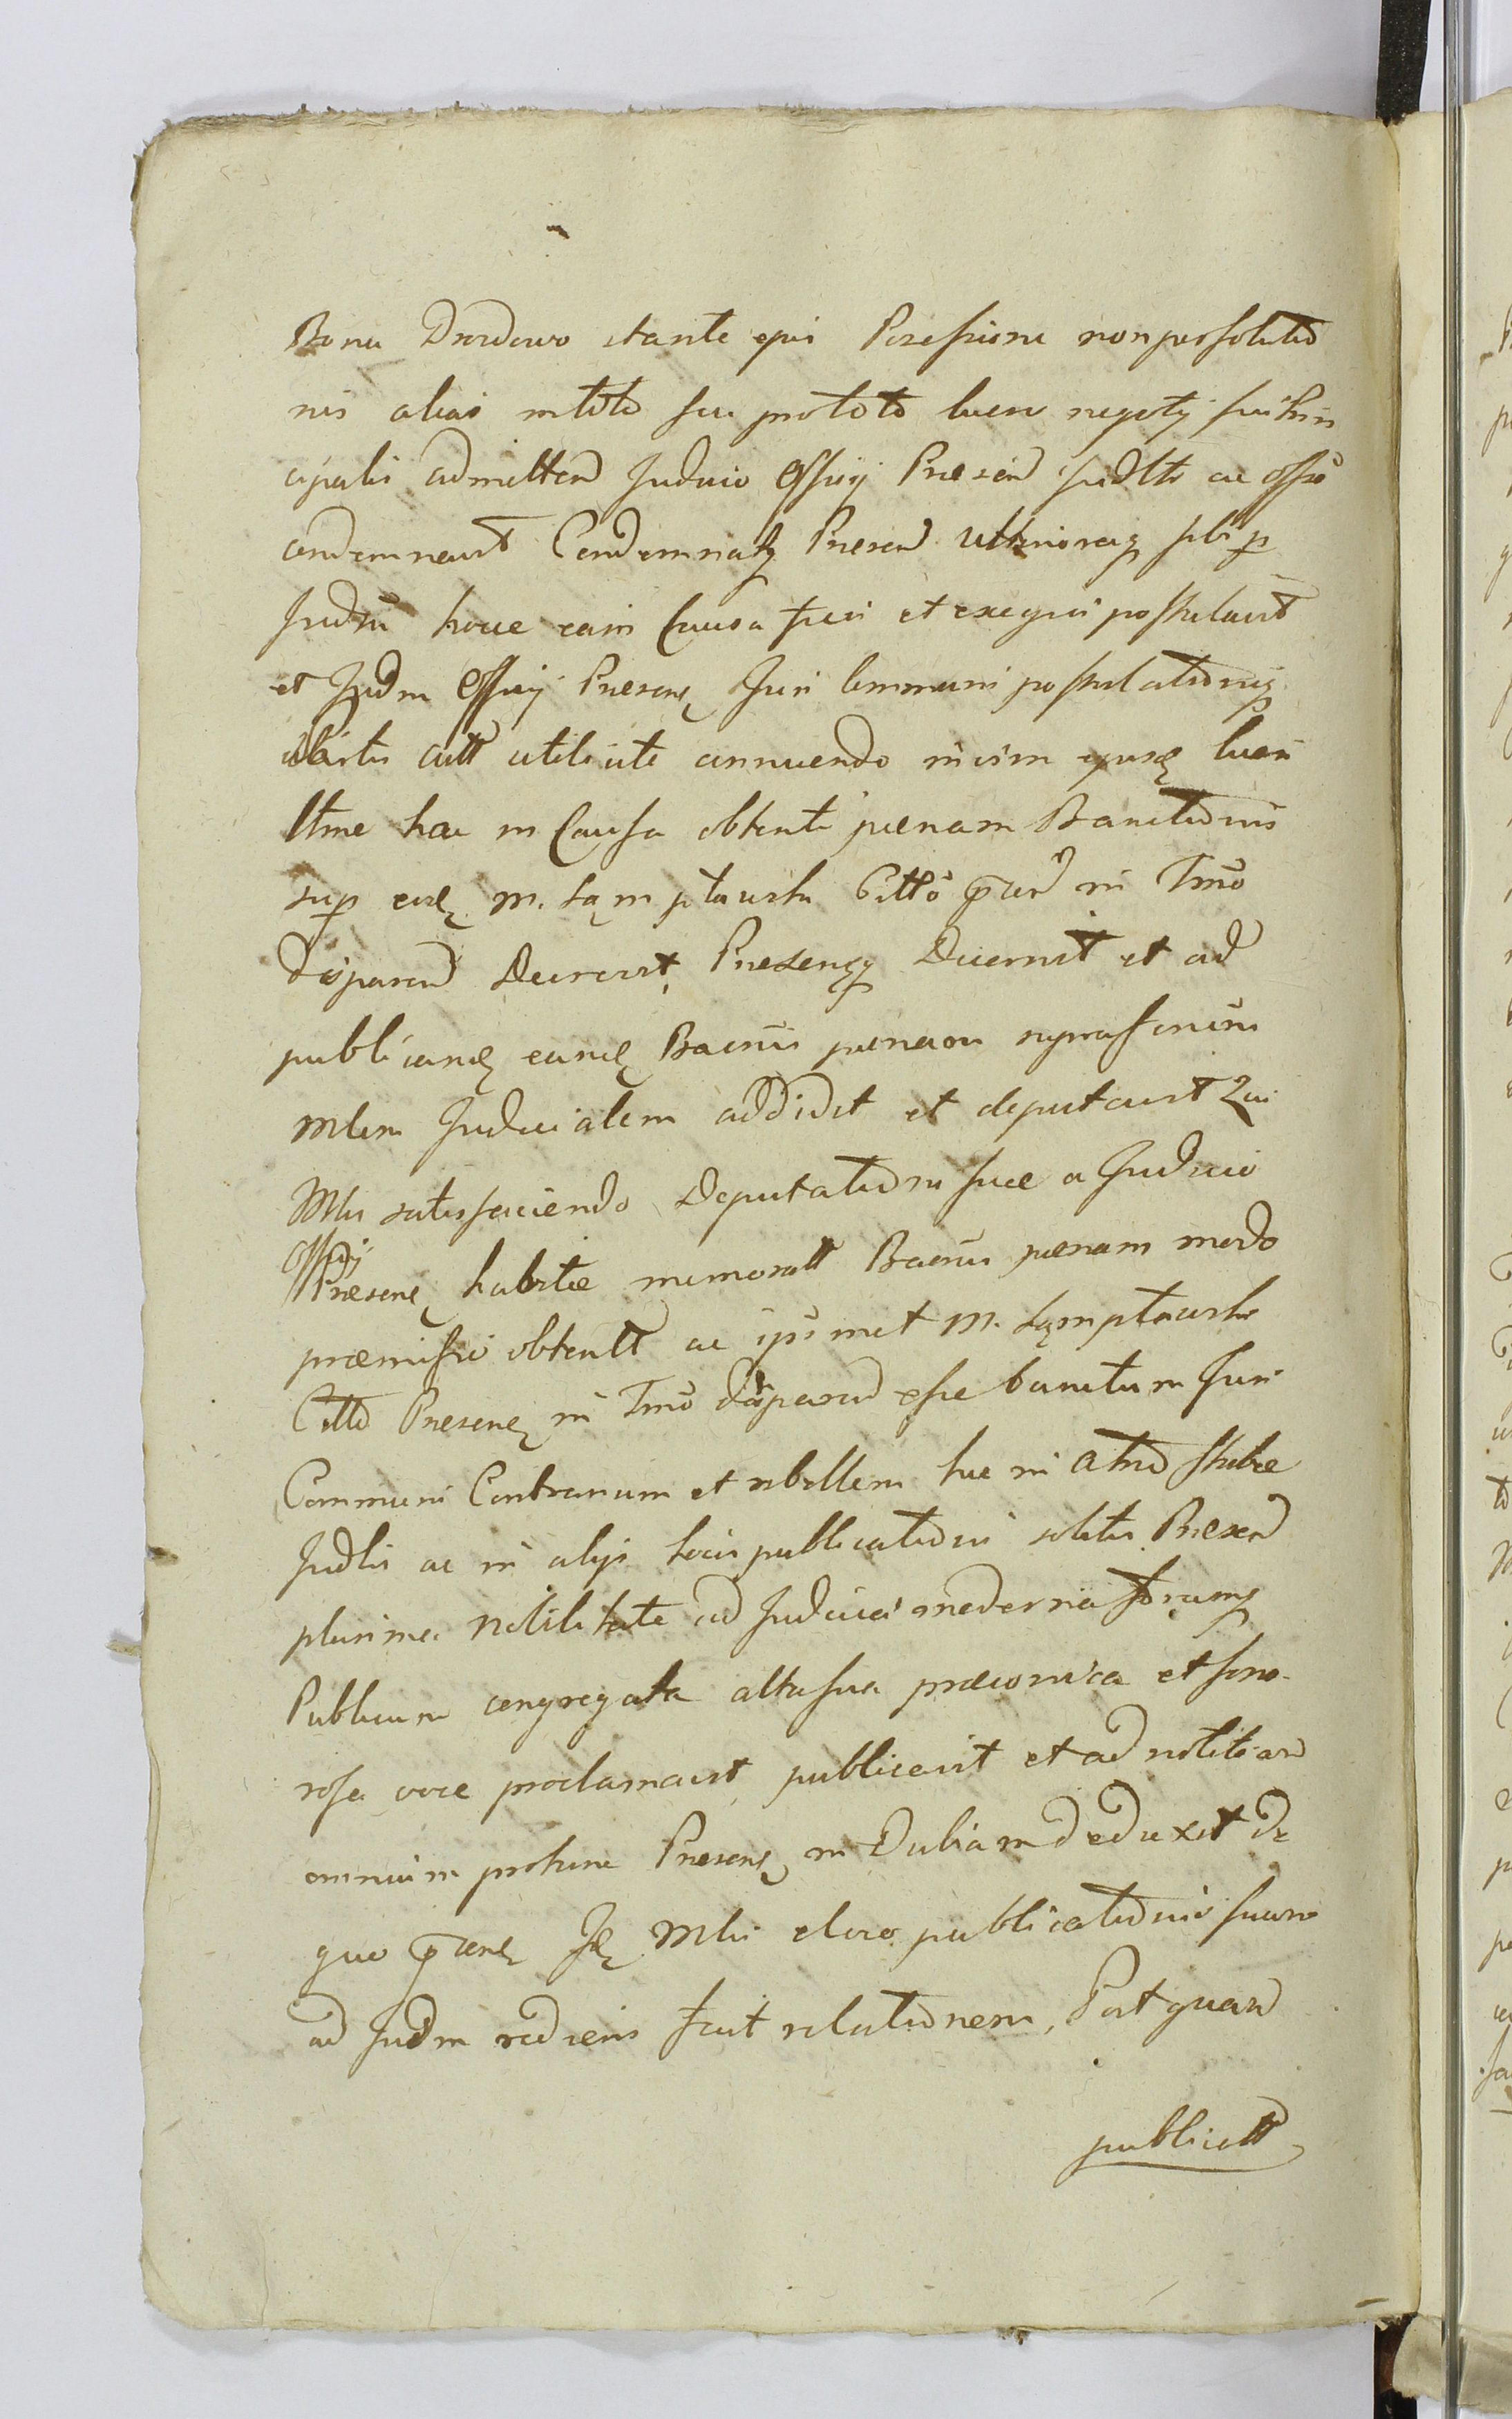 Bona Drozdowo stante ejus Possessione non persolutio
nis alias in toto seu pro toto lucro negotij sui Prin
cipalis admitten Judicio Officij Praesen Judlr ac offo
condemnavit Condemnatq Praesen ulterioraq sibi p
Judm hocce eam Causa fieri et exequi postulavit
et Judm Officij Praesens Juri communi postulationiq
Actt utilitate annuendo in vim lucri
Ittme hac in Causa obtenti paenam Bannitionis
sup eund M. Łęmptowski Citto in Tmno
disparen Decrevit, Decernit et ad
publicand eand Banniis paenam supra scriptum
Mlem Judicialem addidit et deputavit Qui
Mlis satisfaciendo Deputationi suae a Judicio
Officij
Praesens habitae memoratt Banniis paenam modo
praemisso obtentt ac ipsimet M. Łęmptowski
Citto Praesens in Tmno disparen esse banitum Juri
Communi Contrarium et rebellem hic in Atrio Stubae
Judlis ac in alijs locis publicationi solitis Praesen
plurima nobilitate ad Judicia moderna forumq
Publicum congregata alta sua praeconica et sono-
rosa voce proclamavit, publicavit et ad notitiam
omnium protunc Praesens in Dubiam deduxit De
quo Id Mlis e loco publicationis suarum
ad Judm rediens fecit relationem, Post quam
publicatt